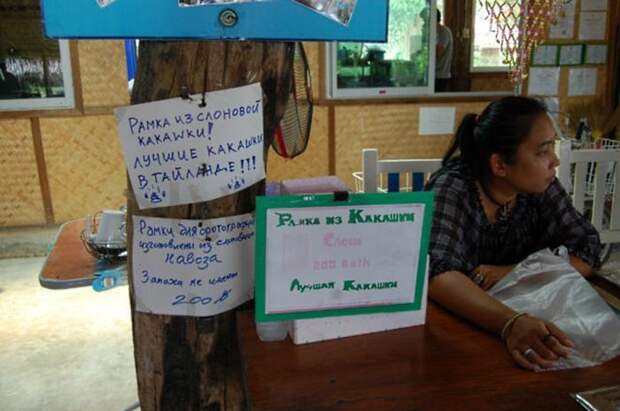 РАМКА ИЗ СЛОНОВОЙ
КАКАШКИ!
ЛУЧШИЕ КАКАШКИ
В ТАЙЛАНДЕ!!!
Рамки для фотографий
изготовлены из слоновьего
Навоза
Запаха не имеют
200 ฿
РАМКА ИЗ КАКАШКИ
СЛОНА
200 БАТ
ЛУЧШАЯ КАКАШКА